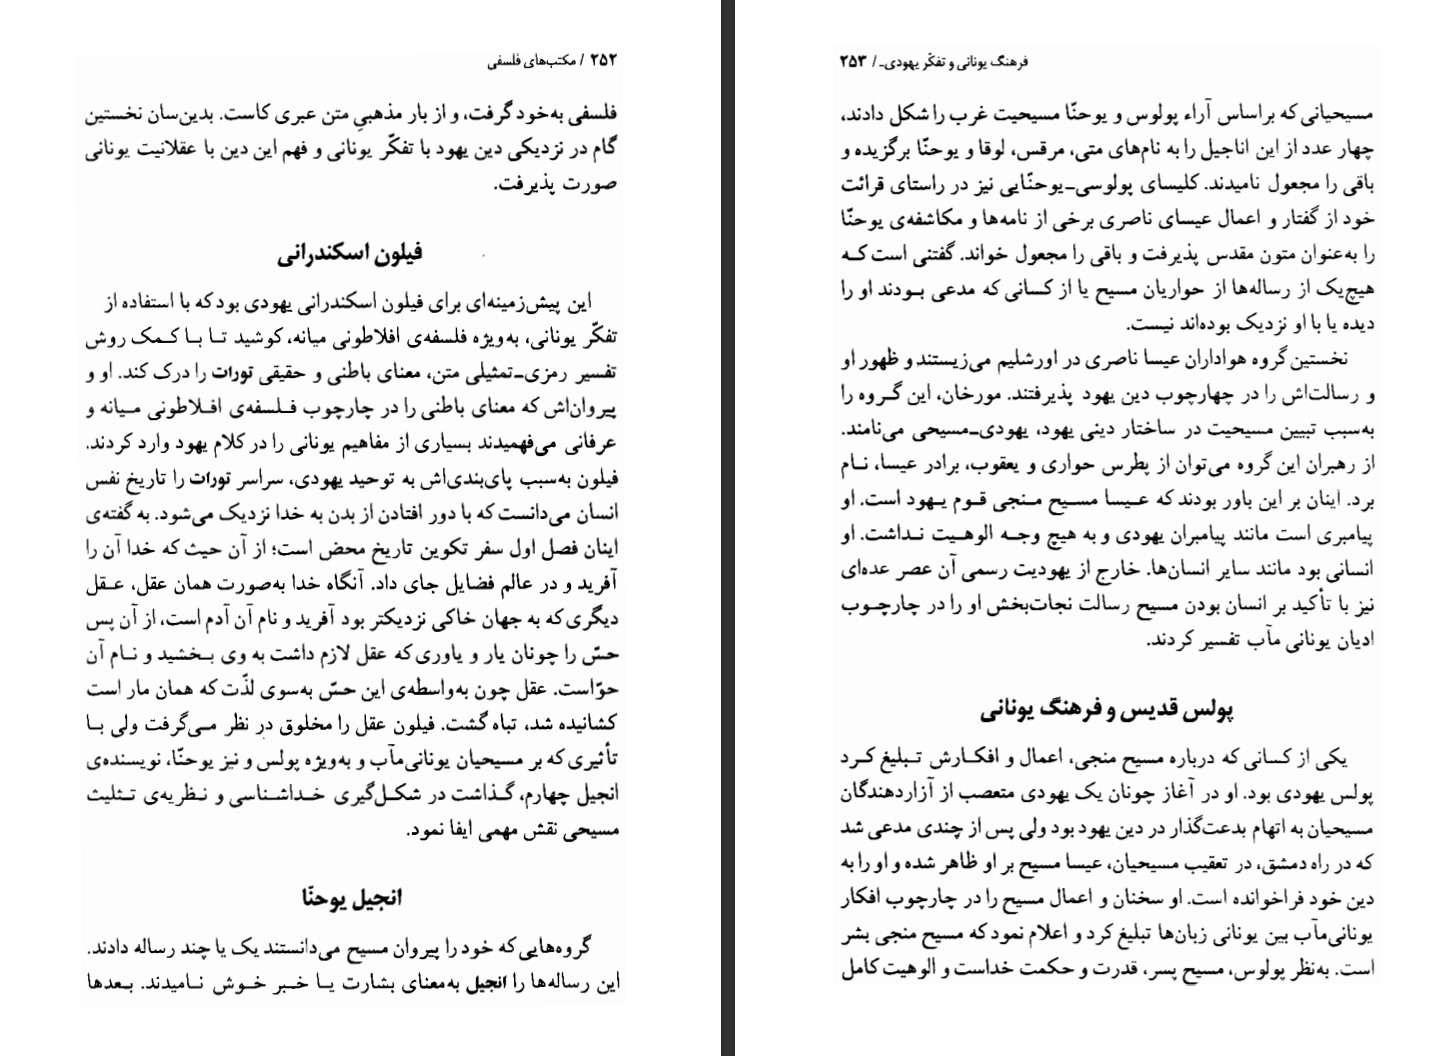 ۲۵۲ / مکتب‌های فلسفی
فلسفی به‌خود گرفت، و از بار مذهبیِ متن عبری کاست. بدین‌سان نخستین
گام در نزدیکی دین یهود با تفکّر یونانی و فهم این دین با عقلانیت یونانی
صورت پذیرفت.
فیلون اسکندرانی
این پیش‌زمینه‌ای برای فیلون اسکندرانی یهودی بود که با استفاده از
تفکّر یونانی، به‌ویژه فلسفه‌ی افلاطونی میانه، کوشید تا با کمک روش
تفسیر رمزی-تمثیلی متن، معنای باطنی و حقیقی تورات را درک کند. او و
پیروان‌اش که معنای باطنی را در چارچوب فلسفه‌ی افلاطونی میانه و
عرفانی می‌فهمیدند بسیاری از مفاهیم یونانی را در کلام یهود وارد کردند.
فیلون به‌سبب پای‌بندی‌اش به توحید یهودی، سراسر تورات را تاریخ نفس
انسان می‌دانست که با دور افتادن از بدن به خدا نزدیک می‌شود. به گفته‌ی
اینان فصل اول سفر تکوین تاریخ محض است؛ از آن حیث که خدا آن را
آفرید و در عالم فضایل جای داد. آنگاه خدا به‌صورت همان عقل، عقل
دیگری که به جهان خاکی نزدیکتر بود آفرید و نام آن آدم است، از آن پس
حسّ را چونان یار و یاوری که عقل لازم داشت به وی بخشید و نام آن
حوّاست. عقل چون به‌واسطه‌ی این حسّ به‌سوی لذّت که همان مار است
کشانیده شد، تباه گشت. فیلون عقل را مخلوق در نظر می‌گرفت ولی با
تأثیری که بر مسیحیان یونانی‌مآب و به‌ویژه پولس و نیز یوحنّا، نویسنده‌ی
انجیل چهارم، گذاشت در شکل‌گیری خداشناسی و نظریه‌ی تثلیث
مسیحی نقش مهمی ایفا نمود.
انجیل یوحنّا
گروه‌هایی که خود را پیروان مسیح می‌دانستند یک یا چند رساله دادند.
این رساله‌ها را انجیل به‌معنای بشارت یا خبر خوش نامیدند. بعدها
فرهنگ یونانی و تفکّر یهودی- / ۲۵۳
مسیحیانی که براساس آراء پولوس و یوحنّا مسیحیت غرب را شکل دادند،
چهار عدد از این اناجیل را به نام‌های متی، مرقس، لوقا و یوحنّا برگزیده و
باقی را مجعول نامیدند. کلیسای پولوسی-یوحنّایی نیز در راستای قرائت
خود از گفتار و اعمال عیسای ناصری برخی از نامه‌ها و مکاشفه‌ی یوحنّا
را به‌عنوان متون مقدس پذیرفت و باقی را مجعول خواند. گفتنی است که
هیچ‌یک از رساله‌ها از حواریان مسیح یا از کسانی که مدعی بودند او را
دیده یا با او نزدیک بوده‌اند نیست.
نخستین گروه هواداران عیسا ناصری در اورشلیم می‌زیستند و ظهور او
و رسالت‌اش را در چهارچوب دین یهود پذیرفتند. مورخان، این گروه را
به‌سبب تبیین مسیحیت در ساختار دینی یهود، یهودی-مسیحی می‌نامند.
از رهبران این گروه می‌توان از پطرس حواری و یعقوب، برادر عیسا، نام
برد. اینان بر این باور بودند که عیسا مسیح منجی قوم یهود است. او
پیامبری است مانند پیامبران یهودی و به هیچ وجه الوهیت نداشت. او
انسانی بود مانند سایر انسان‌ها. خارج از یهودیت رسمی آن عصر عده‌ای
نیز با تأکید بر انسان بودن مسیح رسالت نجات‌بخش او را در چارچوب
ادیان یونانی مآب تفسیر کردند.
پولس قدیس و فرهنگ یونانی
یکی از کسانی که درباره مسیح منجی، اعمال و افکارش تبلیغ کرد
پولس یهودی بود. او در آغاز چونان یک یهودی متعصب از آزاردهندگان
مسیحیان به اتهام بدعت‌گذار در دین یهود بود ولی پس از چندی مدعی شد
که در راه دمشق، در تعقیب مسیحیان، عیسا مسیح بر او ظاهر شده و او را به
دین خود فراخوانده است. او سخنان و اعمال مسیح را در چارچوب افکار
یونانی‌مآب بین یونانی زبان‌ها تبلیغ کرد و اعلام نمود که مسیح منجی بشر
است. به‌نظر پولوس، مسیح پسر، قدرت و حکمت خداست و الوهیت کامل